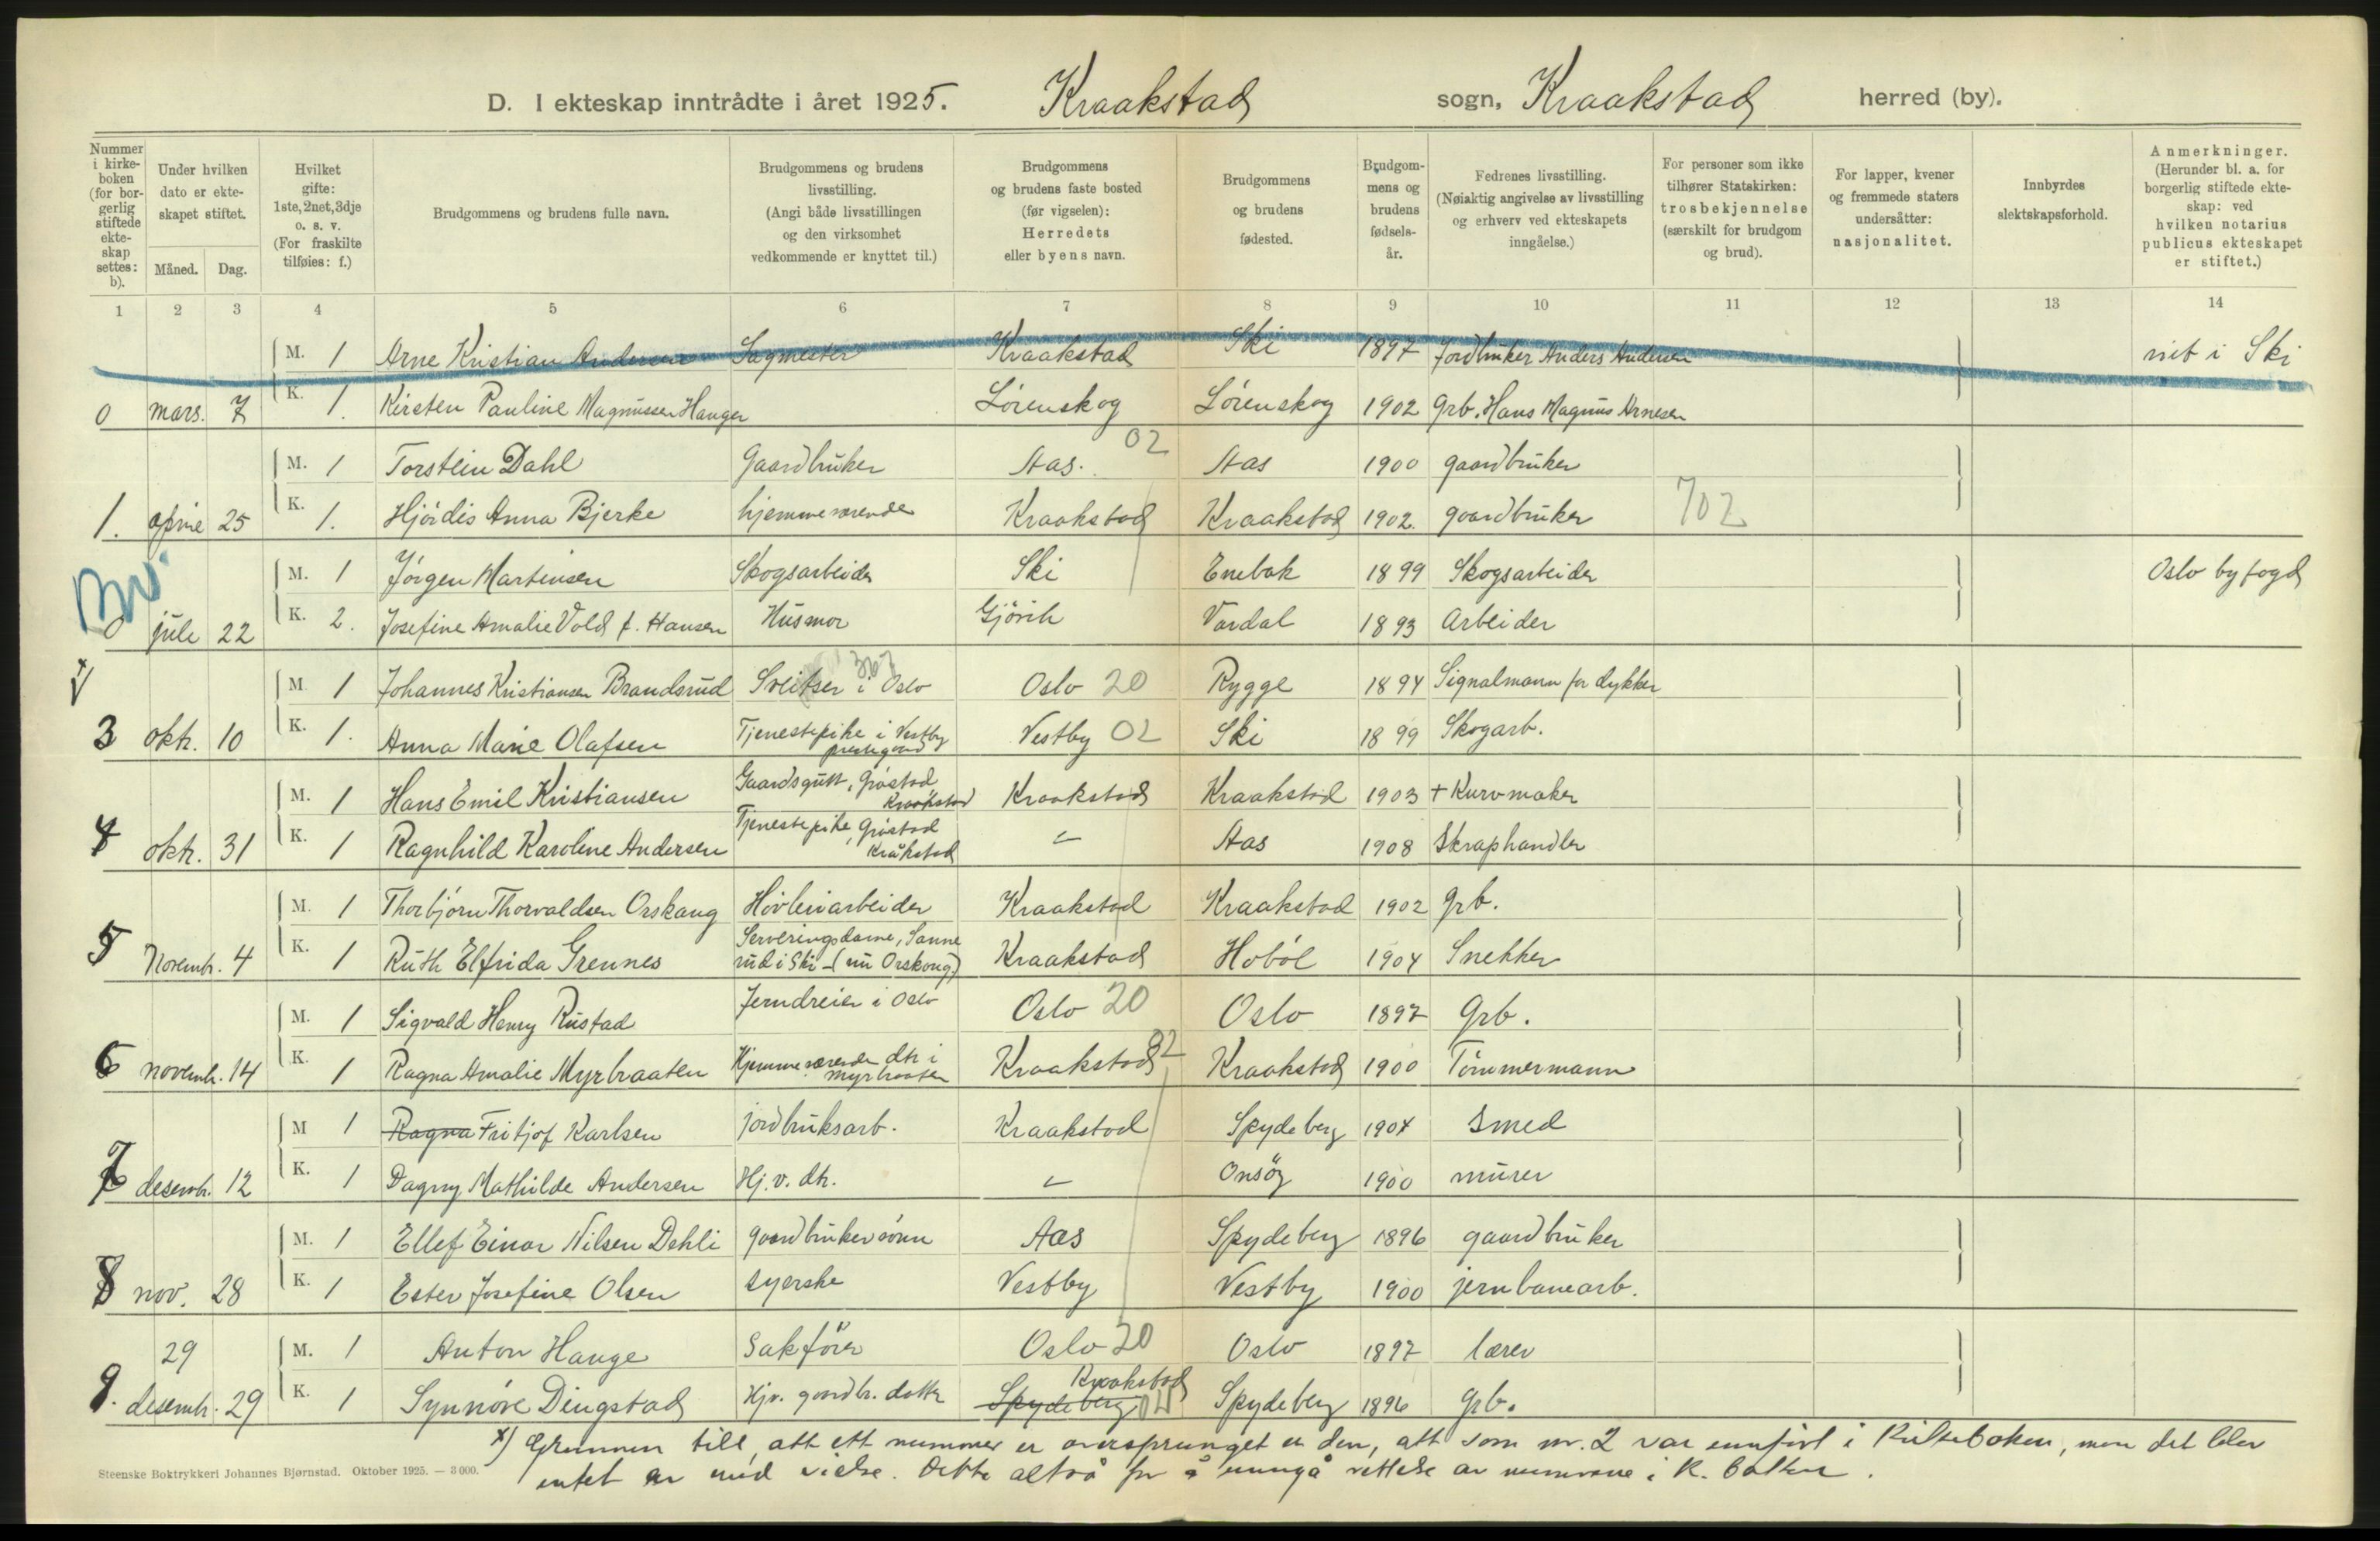 D. I ekteskap inntrådte i året 1925. Kraakstad sogn, Kraakstad herred (by).
Nummer i kirkeboken (for borgerlig stiftede ekteskap settes: b).
Under hvilken dato er ekteskapet stiftet.
Måned. Dag.
Hvilket gifte: 1ste, 2net, 3dje o. s. v. (For fraskilte tilføies: f.)
Brudgommens og brudens fulle navn.
Brudgommens og brudens livsstilling. (Angi både livsstillingen og den virksomhet vedkommende er knyttet til.)
Brudgommens og brudens faste bosted (før vigselen): Herredets eller byens navn.
Brudgommens og brudens fødested.
Brudgommens og brudens fødselsår.
Fedrenes livsstilling. (Nøiaktig angivelse av livsstilling og erhverv ved ekteskapets inngåelse.)
For personer som ikke tilhører Statskirken: trosbekjennelse (særskilt for brudgom og brud).
For lapper, kvener og fremmede staters undersåtter: nasjonalitet.
Innbyrdes slektskapsforhold.
Anmerkninger. (Herunder bl. a. for borgerlig stiftede ekteskap: ved hvilken notarius publicus ekteskapet er stiftet.)
1 2 3 4 5 6 7 8 9 10 11 12 13 14
M. 1 Arne Kristian Andersen Sagmester Kraakstad Ski 1897 Jordbruker Anders Andersen viet i Ski
0 mars. 7 K. 1. Kirsten Pauline Magnussen Hauger Lørenskog Lørenskog 1902 Grb. Hans Magnus Arnesen
M. 1 Torstein Dahl Gaardbruker Aas. 02 Aas 1900 gaardbruker
1. april 25 K. 1. Hjördis Anna Bjerke hjemmeværende Kraakstad Kraakstad 1902. gaardbruker 702
M. 1 Jörgen Martinsen Skogsarbeider Ski Enebak 1899 Skogsarbeider Oslo byfogd
0 juli 22 K. 2. Josefine Amalie Vold f. Hansen Husmor Gjövik Vardal 1893 Arbeider
M. 1 Johannes Kristiansen Brandsrud Sveitser i Oslo Oslo 20 Rygge 1894 Signalmann for dykker
3 okt. 10 K. 1. Anna Marie Olafsen Tjenestepike i Vestby prestegaard Vestby 02 Ski 1899 Skogarb.
M. 1 Hans Emil Kristiansen Gaardsgutt, Gröstad Kraakstad Kraakstad Kraakstad 1903 + Kurvmaker
4 okt. 31 K. 1 Ragnhild Karoline Andersen Tjenestepike, Gröstad Kråkstad — Aas 1908 Skraphandler
M. 1 Thorbjörn Thorvaldsen Orskaug Hövleriarbeider Kraakstad Kraakstad 1902 grb.
5 Novembr. 4 K. 1 Ruth Elfrida Grennes Serveringsdame, Sannerud i Ski – (nu Orskaug) Kraakstad Hoböl 1904 Snekker
M. 1 Sigvald Henry Rustad Jerndreier i Oslo Oslo 20 Oslo 1897 Grb.
6 novembr. 14 K. 1 Ragna Amalie Myrbraaten Hjemmeværende dtr. i Myrbraaten Kraakstad 02 Kraakstad 1900 Tömmermann
M 1 Ragna Fritjof Karlsen jordbruksarb. Kraakstad Spydeberg 1904 Smed
7 desembr. 12 K. 1 Dagny Mathilde Andersen Hj. v. dtr. — Onsöy 1900 murer
M. 1 Ellef Einar Nilsen Dehli gaardbrukersönn Aas Spydeberg 1896 gaardbruker
8 nov. 28 K. 1 Ester Josefine Olsen syerske Vestby Vestby 1900 jernbanearb.
29 M. 1 Anton Hauge Sakförer Oslo 20 Oslo 1897 lærer
9. desembr. 29 K. 1 Synnöve Dingstad Hjv. gaardbr. datter Spydeberg Kraakstad Spydeberg 1896 Grb.
x) Grunnen till, att ett nummer er oversprunget er den, att som nr. 2 var innfört i Kirkeboken, men det blev
intet av med vielse. Dette altså for å unngå rettelse av numrene i K. boken.
Steenske Boktrykkeri Johannes Bjørnstad. Oktober 1925. — 3 000.